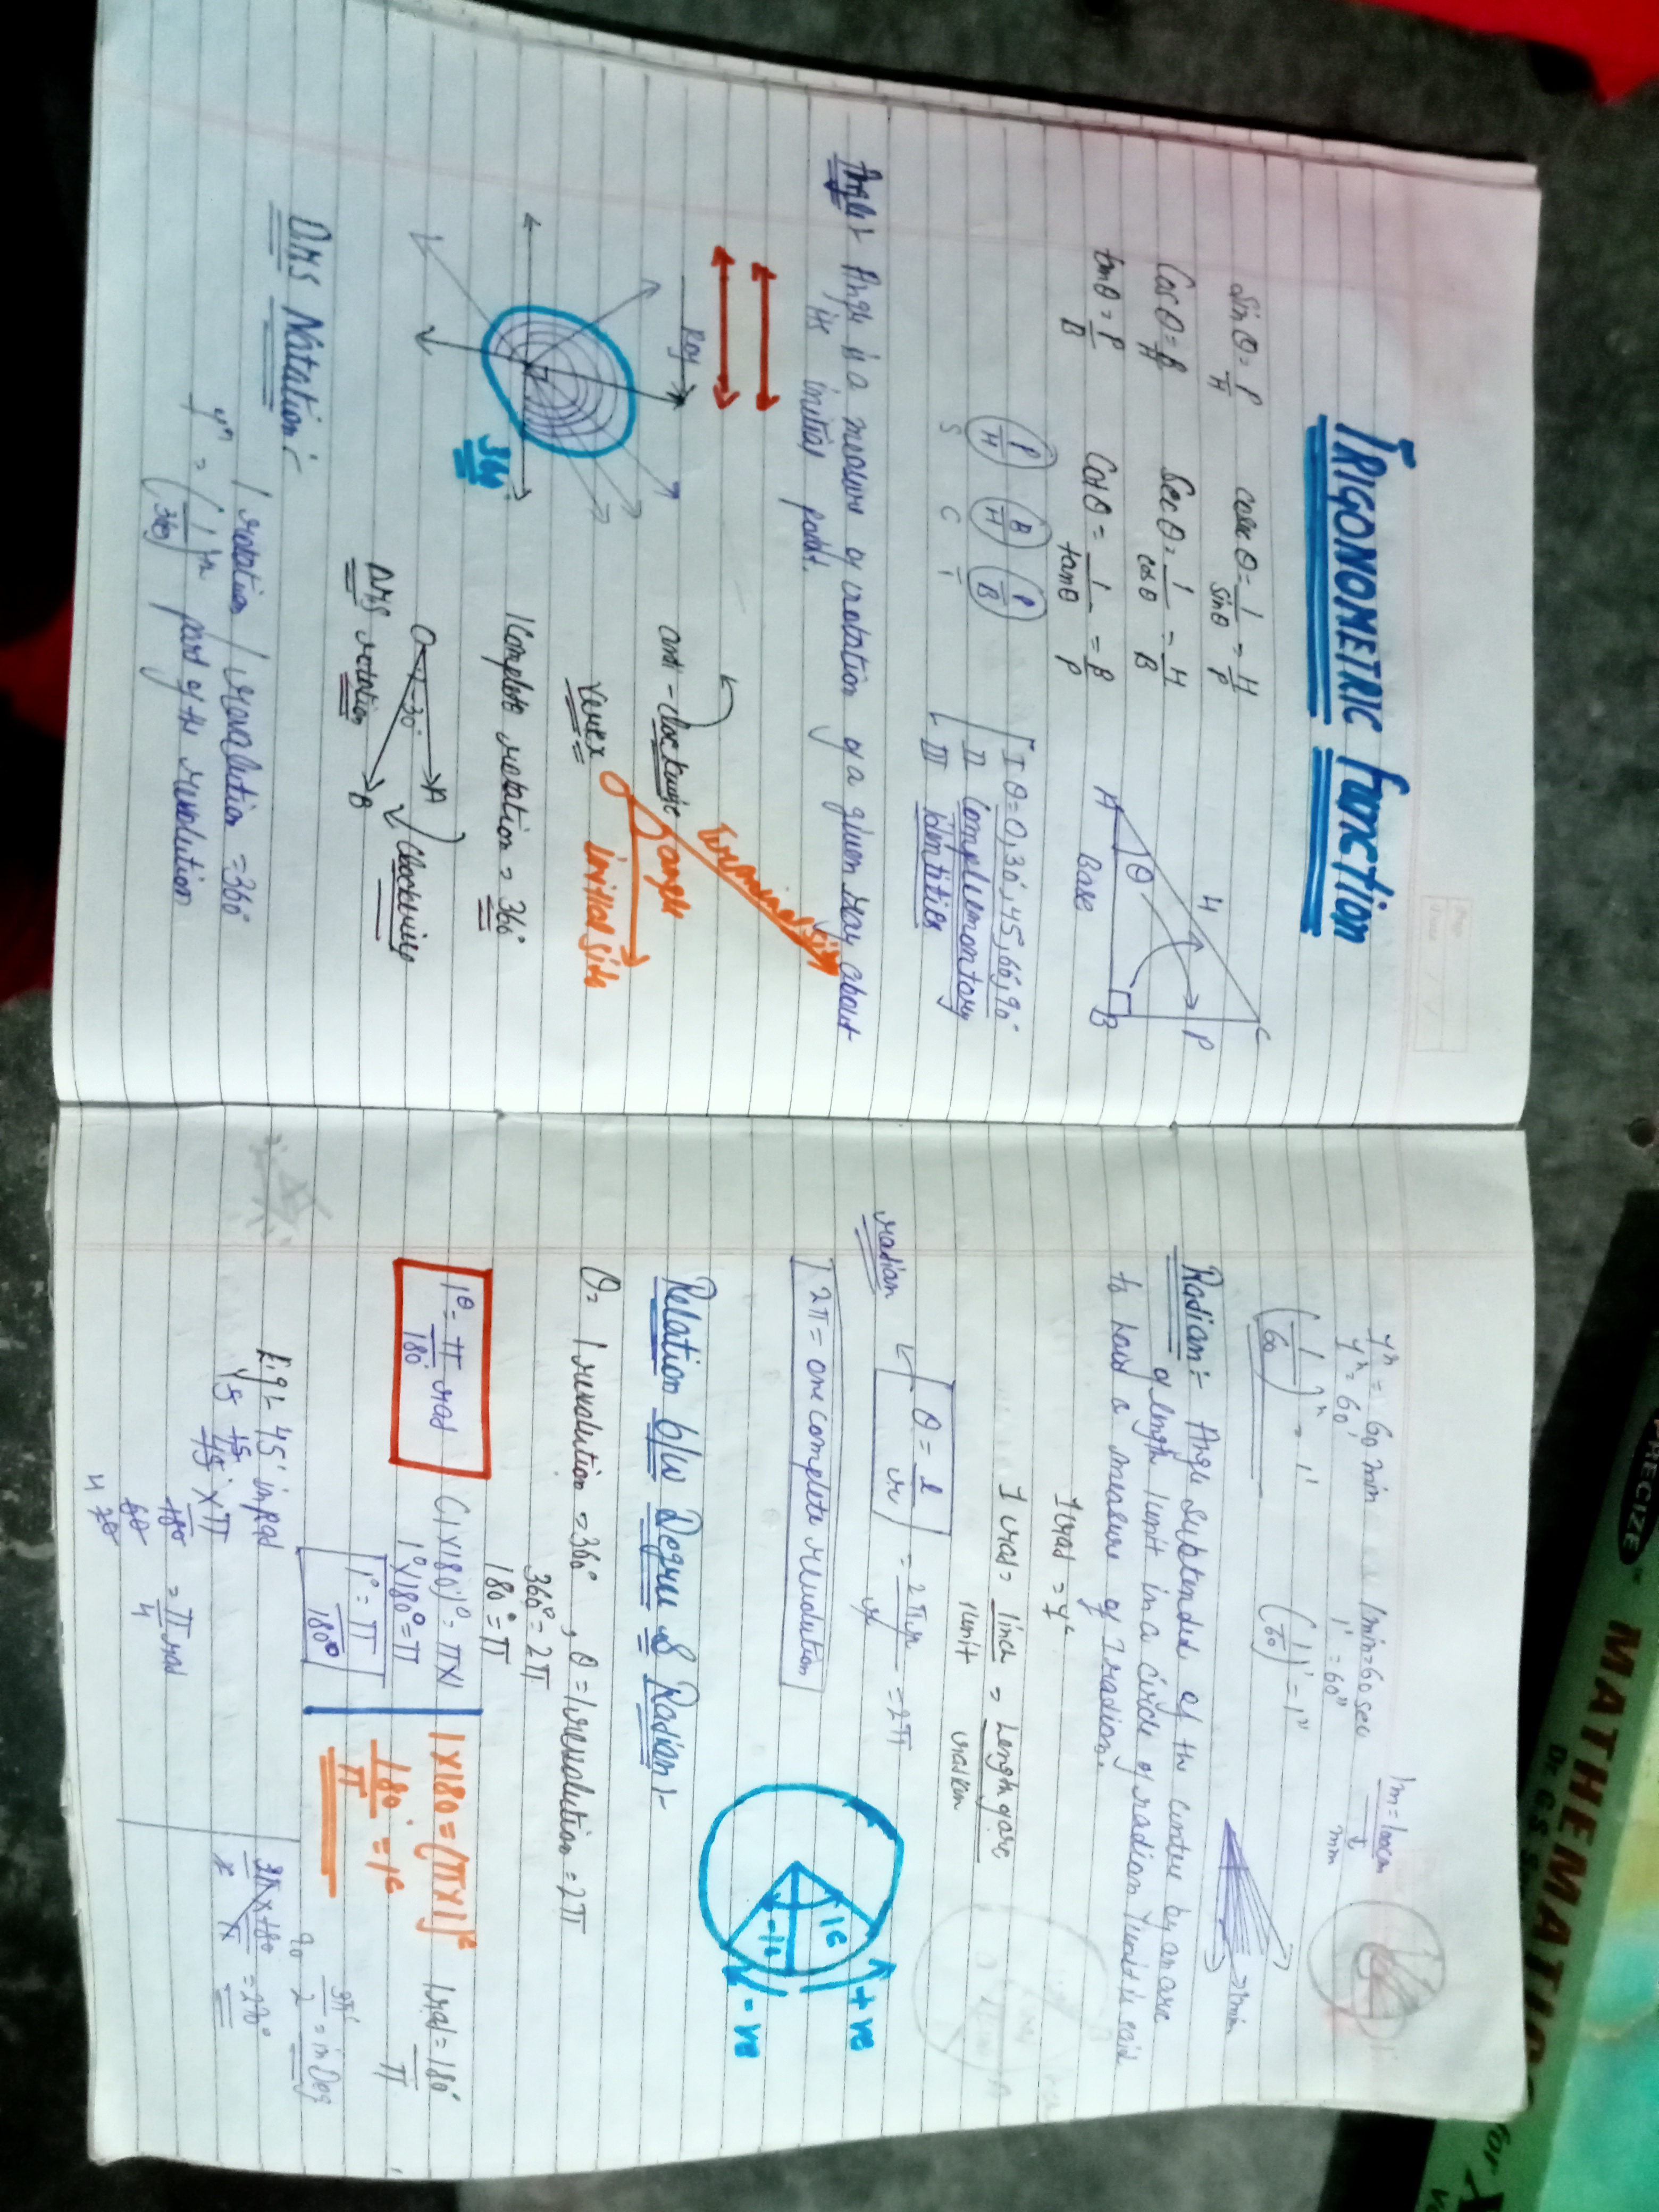 TRIGONOMETRIC function
Sinθ = P/H cosecθ = 1/sinθ = H/P
Cosθ = B/H Secθ = 1/cosθ = H/B
tanθ = P/B Cotθ = 1/tanθ = B/P
A θ H C P B
Base
P/H B/H P/B
S C T
I θ = 0, 30°, 45°, 60°, 90°
II Complementary
III identities
Angle:- Angle is a measure of rotation of a given ray about
its initial point.
Ray
360°
anti-clockwise
Terminal side
angle
Vertex
initial side
1 Complete rotation = 360°
O -30° A
B
Clockwise
DMS notation
DMS Notation :-
1 rotation / revolution = 360°
1° = (1/360)th part of the revolution
= 60 min 1 min = 60 sec
= 60' 1' = 60"
(1/60) = 1' (1/60)' = 1"
1m = 100cm
mm
1min
Radian:- Angle subtended at the center by an arc
of length 1unit in a circle of radian 1unit is said
to have a measure of 1radian.
1rad = 1ᶜ
1 rad = 1inch/1unit = Length of arc/radian
radian
θ = l/r = 2πr/r = 2π
2π = one complete revolution
1c
-1c
+ve
-ve
Relation b/w Degree & Radian:-
θ = 1revolution = 360°, θ = 1revolution = 2π
360° = 2π
180° = π
1° = π/180° rad
(1×180)° = π×1
1°×180° = π
1° = π/180°
1×180 = (π×1)ᶜ
180°/π = 1ᶜ
1rad = 180°/π
E.g:- 45° in rad
45×π/180 = π/4 rad
3π/2 = in Deg
3π/2 × 180/π = 270°
PRECIZE
MATHEMATIC
Dr. G.S. S
for